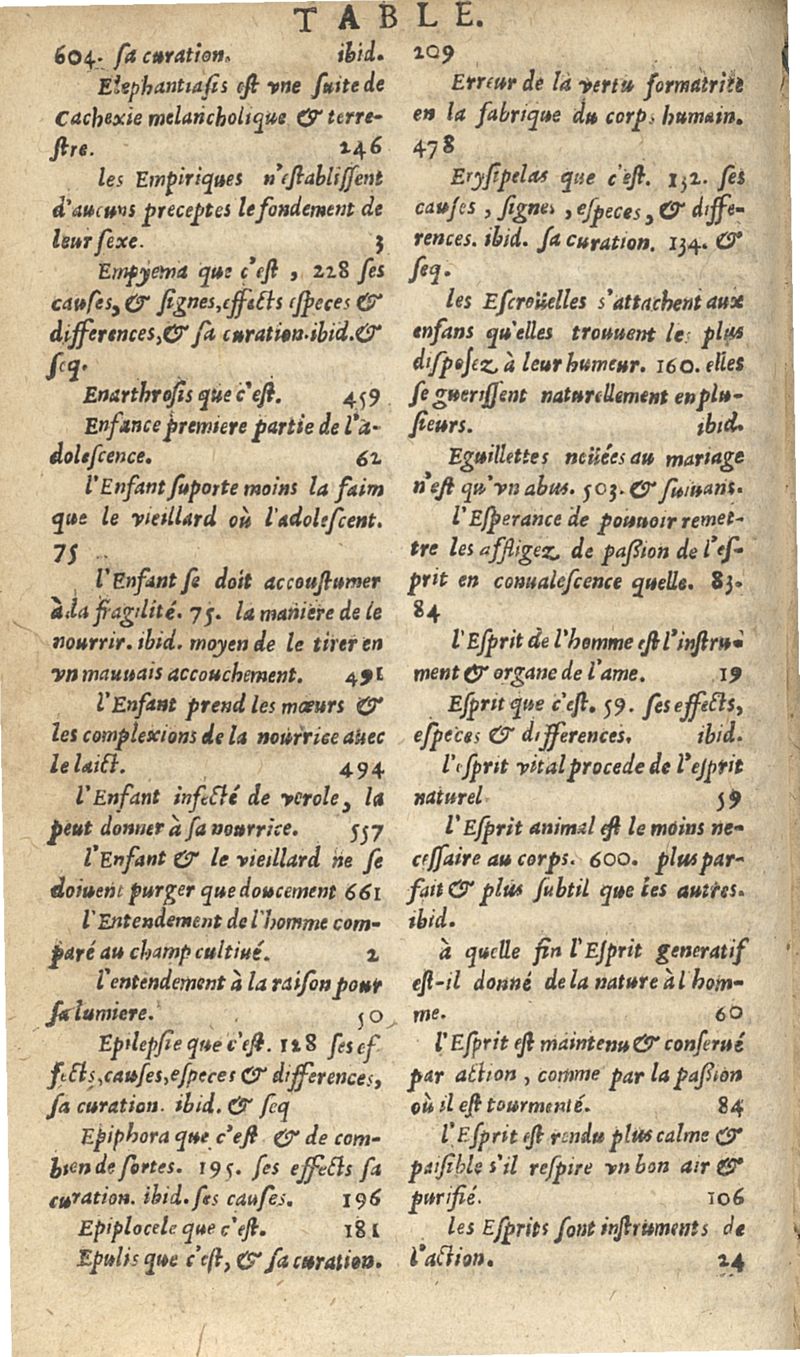 TABLE.
604. sa curation. ibid.
Elephantiasis est vne suite de
Cachexie melancholique & terre-
stre. 246
les Empiriques n'establissent
d'aucuns preceptes le fondement de
leur sexe. 3
Empyema que c'est, 228 ses
causes, & signes, effects especes &
differences, & sa curation. ibid. &
seq.
Enarthrosis que c'est. 459
Enfance premiere partie de l'a-
dolescence. 62
l'Enfant suporte moins la faim
que le vieillard où l'adolescent.
75
l'Enfant se doit accoustumer
à la fragilité. 75. la maniere de le
nourrir. ibid. moyen de le tirer en
vn mauuais accouchement. 491
l'Enfant prend les mœurs &
les complexions de la nourrice auec
le laict. 494
l'Enfant infecté de verole, la
peut donner à sa nourrice. 557
l'Enfant & le vieillard ne se
doiuent purger que doucement 661
l'Entendement de l'homme com-
paré au champ cultiué. 2
l'entendement à la raison pour
sa lumiere. 50
Epilepsie que c'est. 128 ses ef
fects, causes, especes & differences,
sa curation. ibid. & seq
Epiphora que c'est & de com-
bien de sortes. 195. ses effects sa
curation. ibid. ses causes. 196
Epiplocele que c'est. 181
Epulis que c'est, & sa curation.
209
Erreur de la vertu formatrice
en la fabrique du corps humain.
478
Erysipelas que c'est. 132. ses
causes, signes, especes, & diffe-
rences. ibid. sa curation. 134. &
seq.
les Escroüelles s'attachent aux
enfans qu'elles trouuent les plus
disposez à leur humeur. 160. elles
se guerissent naturellement en plu-
sieurs. ibid.
Eguillettes noüées au mariage
n'est qu'vn abus. 503. & suiuans.
l'Esperance de pouuoir remet-
tre les affligez de passion de l'es-
prit en conualescence quelle. 83.
84
l'Esprit de l'homme est l'instru-
ment & organe de l'ame. 19
Esprit que c'est. 59. ses effects,
especes & differences. ibid.
l'esprit vital procede de l'esprit
naturel 59
l'Esprit animal est le moins ne-
cessaire au corps. 600. plus par-
fait & plus subtil que les autres.
ibid.
à quelle fin l'Esprit generatif
est-il donné de la nature à l'hom-
me. 60
l'Esprit est maintenu & conserué
par action, comme par la passion
où il est tourmenté. 84
l'Esprit est rendu plus calme &
paisible s'il respire vn bon air &
purifié. 106
les Esprits sont instruments de
l'action. 24